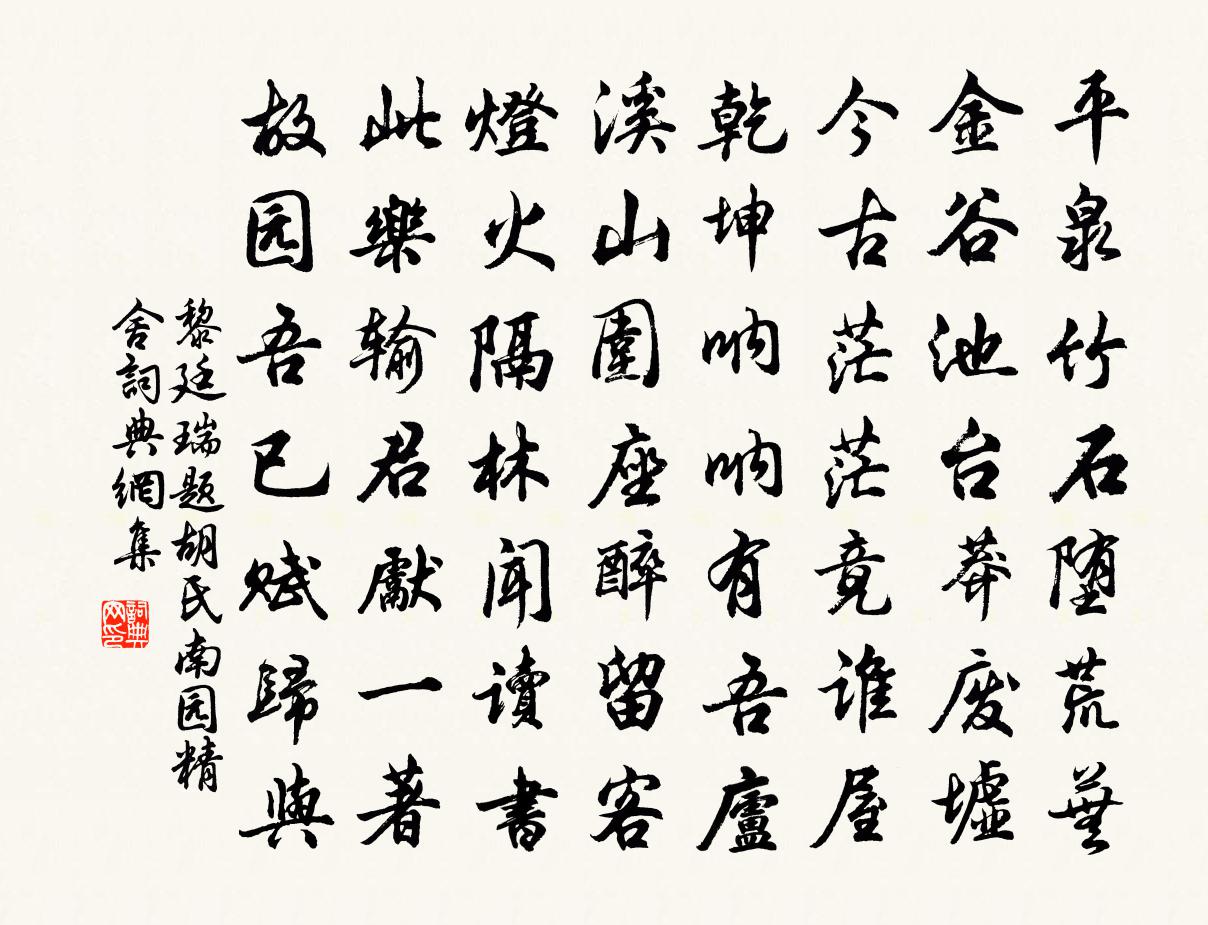 平泉竹石堕荒蕪
金谷池台莽废墟
今古茫茫竟谁屋
乾坤呐呐有吾廬
溪山圍座醉留客
燈火隔林闻读書
此樂输君獻一著
故园吾已赋歸與
黎廷瑞题胡氏南园精
舍詞典網集
詞典网印